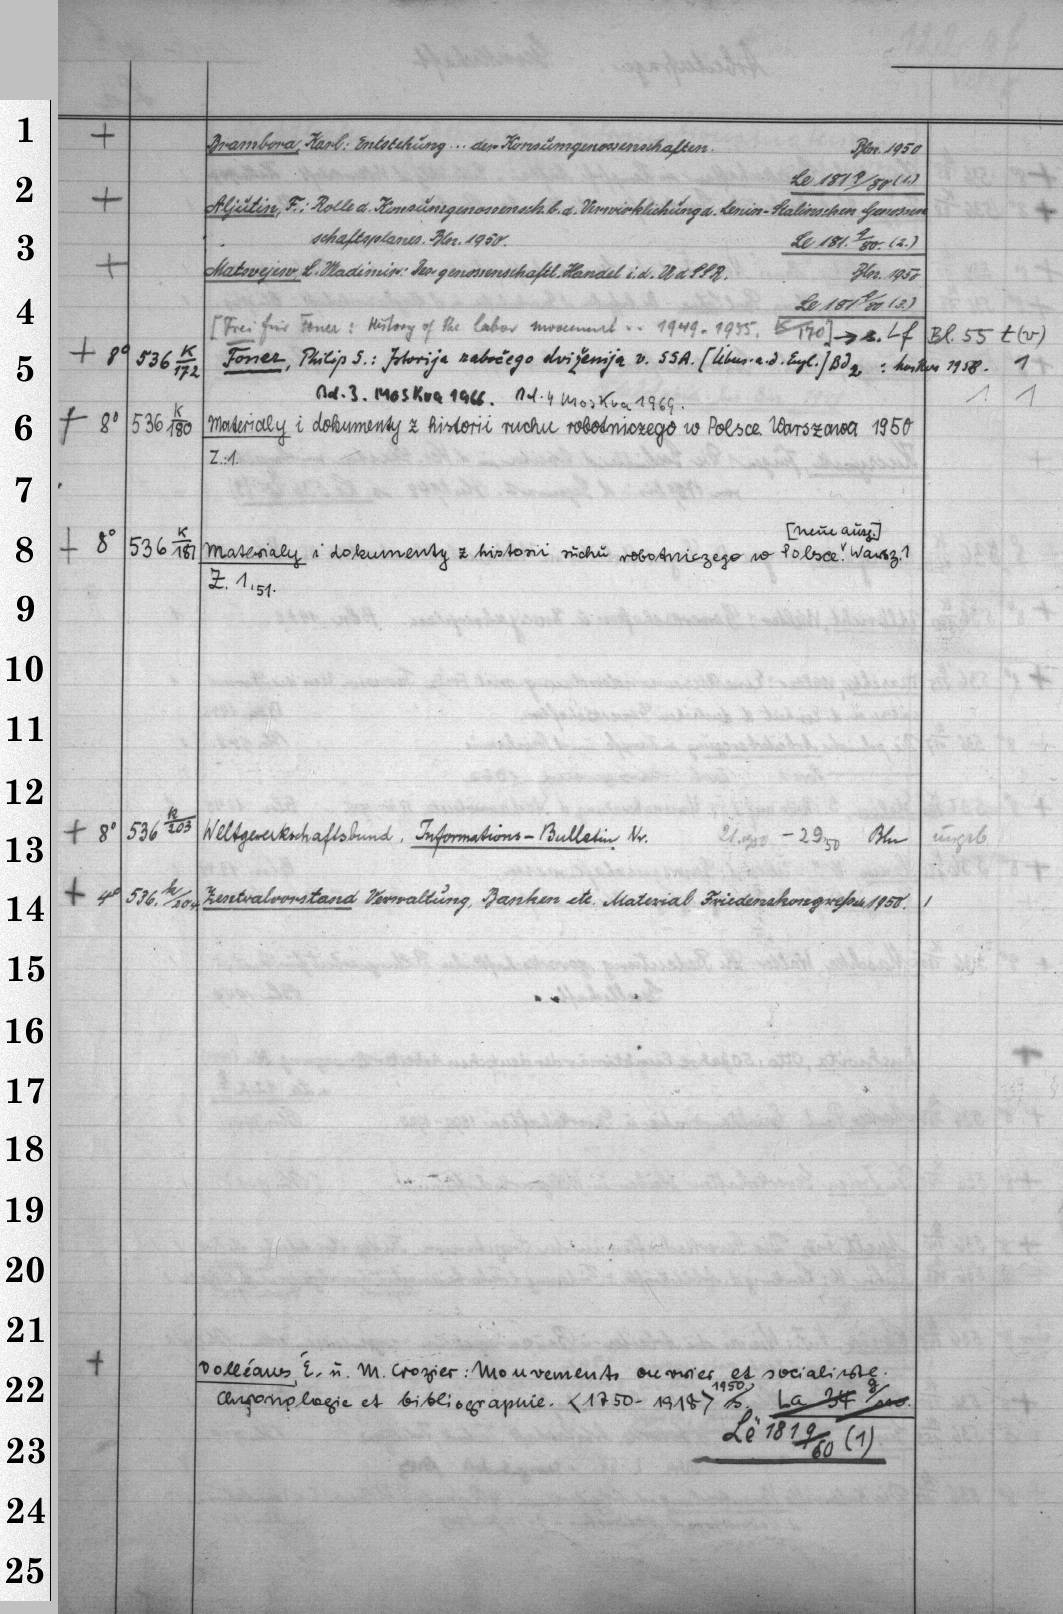 1 + Brambora, Karl: Entstehung ... der Konsumgenossenschaften. Bln. 1950
Le 181 9/80 (1)
2 + Aljutin, F.: Rolle d. Konsumgenossensch. b. d. Verwirklichung d. Lenin-Stalinschen Genossen
schaftsplanes. Bln. 1950. Le 181. 9/80. (2.)
3 + Matwejew, L. Wladimir: Der genossenschaftl. Handel i. d. UdSSR. Bln. 1950
Le 181 9/80 (3.)
4 [Frei für Foner: History of the labor movement .. 1949-1955. K 170] → s. Lf Bl. 55 t (v)
5 + 8° 536 K/172 Foner, Philip S.: Istorija rabočego dviženija v. SSA. [Übers. a. d. Engl.] Bd 2 : Moskva 1958. 1
Bd. 3. Moskva 1966. Bd. 4 Moskva 1969. 1 1
6 + 8° 536 K/180 Materialy i dokumenty z historii ruchu robotniczego w Polsce. Warszawa 1950
Z. 1.
7
[neue ausg.]
8 + 8° 536 K/181 Materialy i dokumenty z historii ruchu robotniczego w Polsce. Warsz. 1
Z. 1, 51.
9
10
11
12
13 + 8° 536 K/203 Weltgewerkschaftsbund, Informations-Bulletin Nr. 21 - 29 50 Bln ungeb
14 + 4° 536. K/204 Zentralvorstand Verwaltung, Banken etc. Material Friedenskongress 1950. 1
15
16
17
18
19
20
21
22 + Dolléans, É. u. M. Crozier: Mouvements ouvrier et socialiste.
Chronologie et bibliographie. <1750-1918> 1950 La 34
23 Le 181 9/60 (1)
24
25